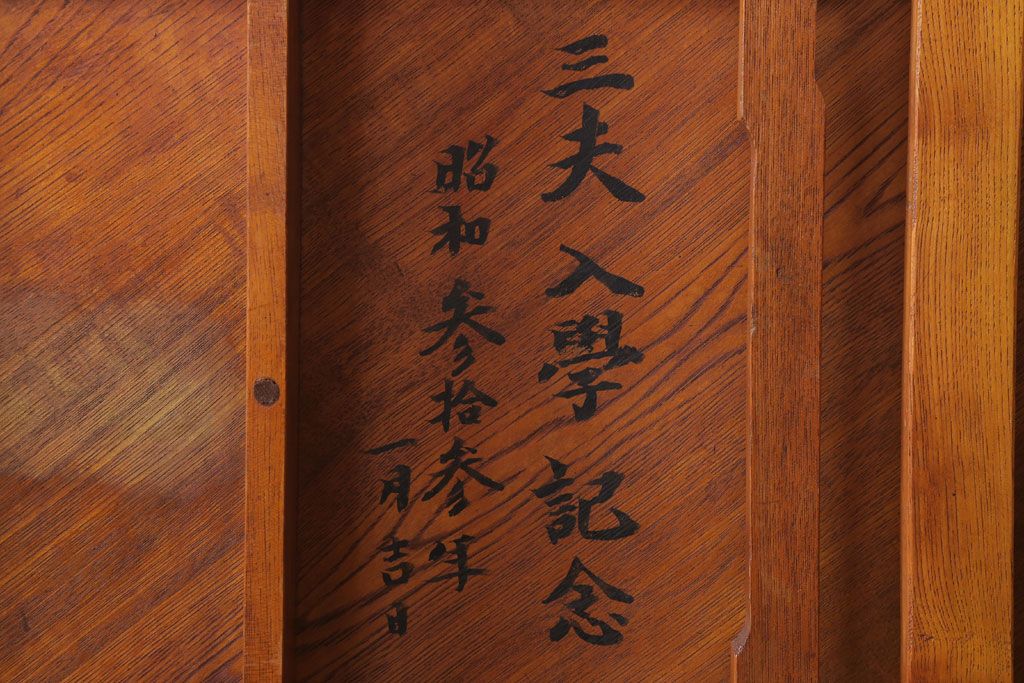 三夫入學記念
昭和参拾参年
一月吉日